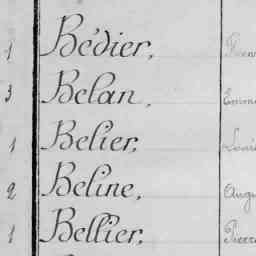 1 Bédier,
3 Belan,
1 Belier,
2 Beline,
1 Bellier,